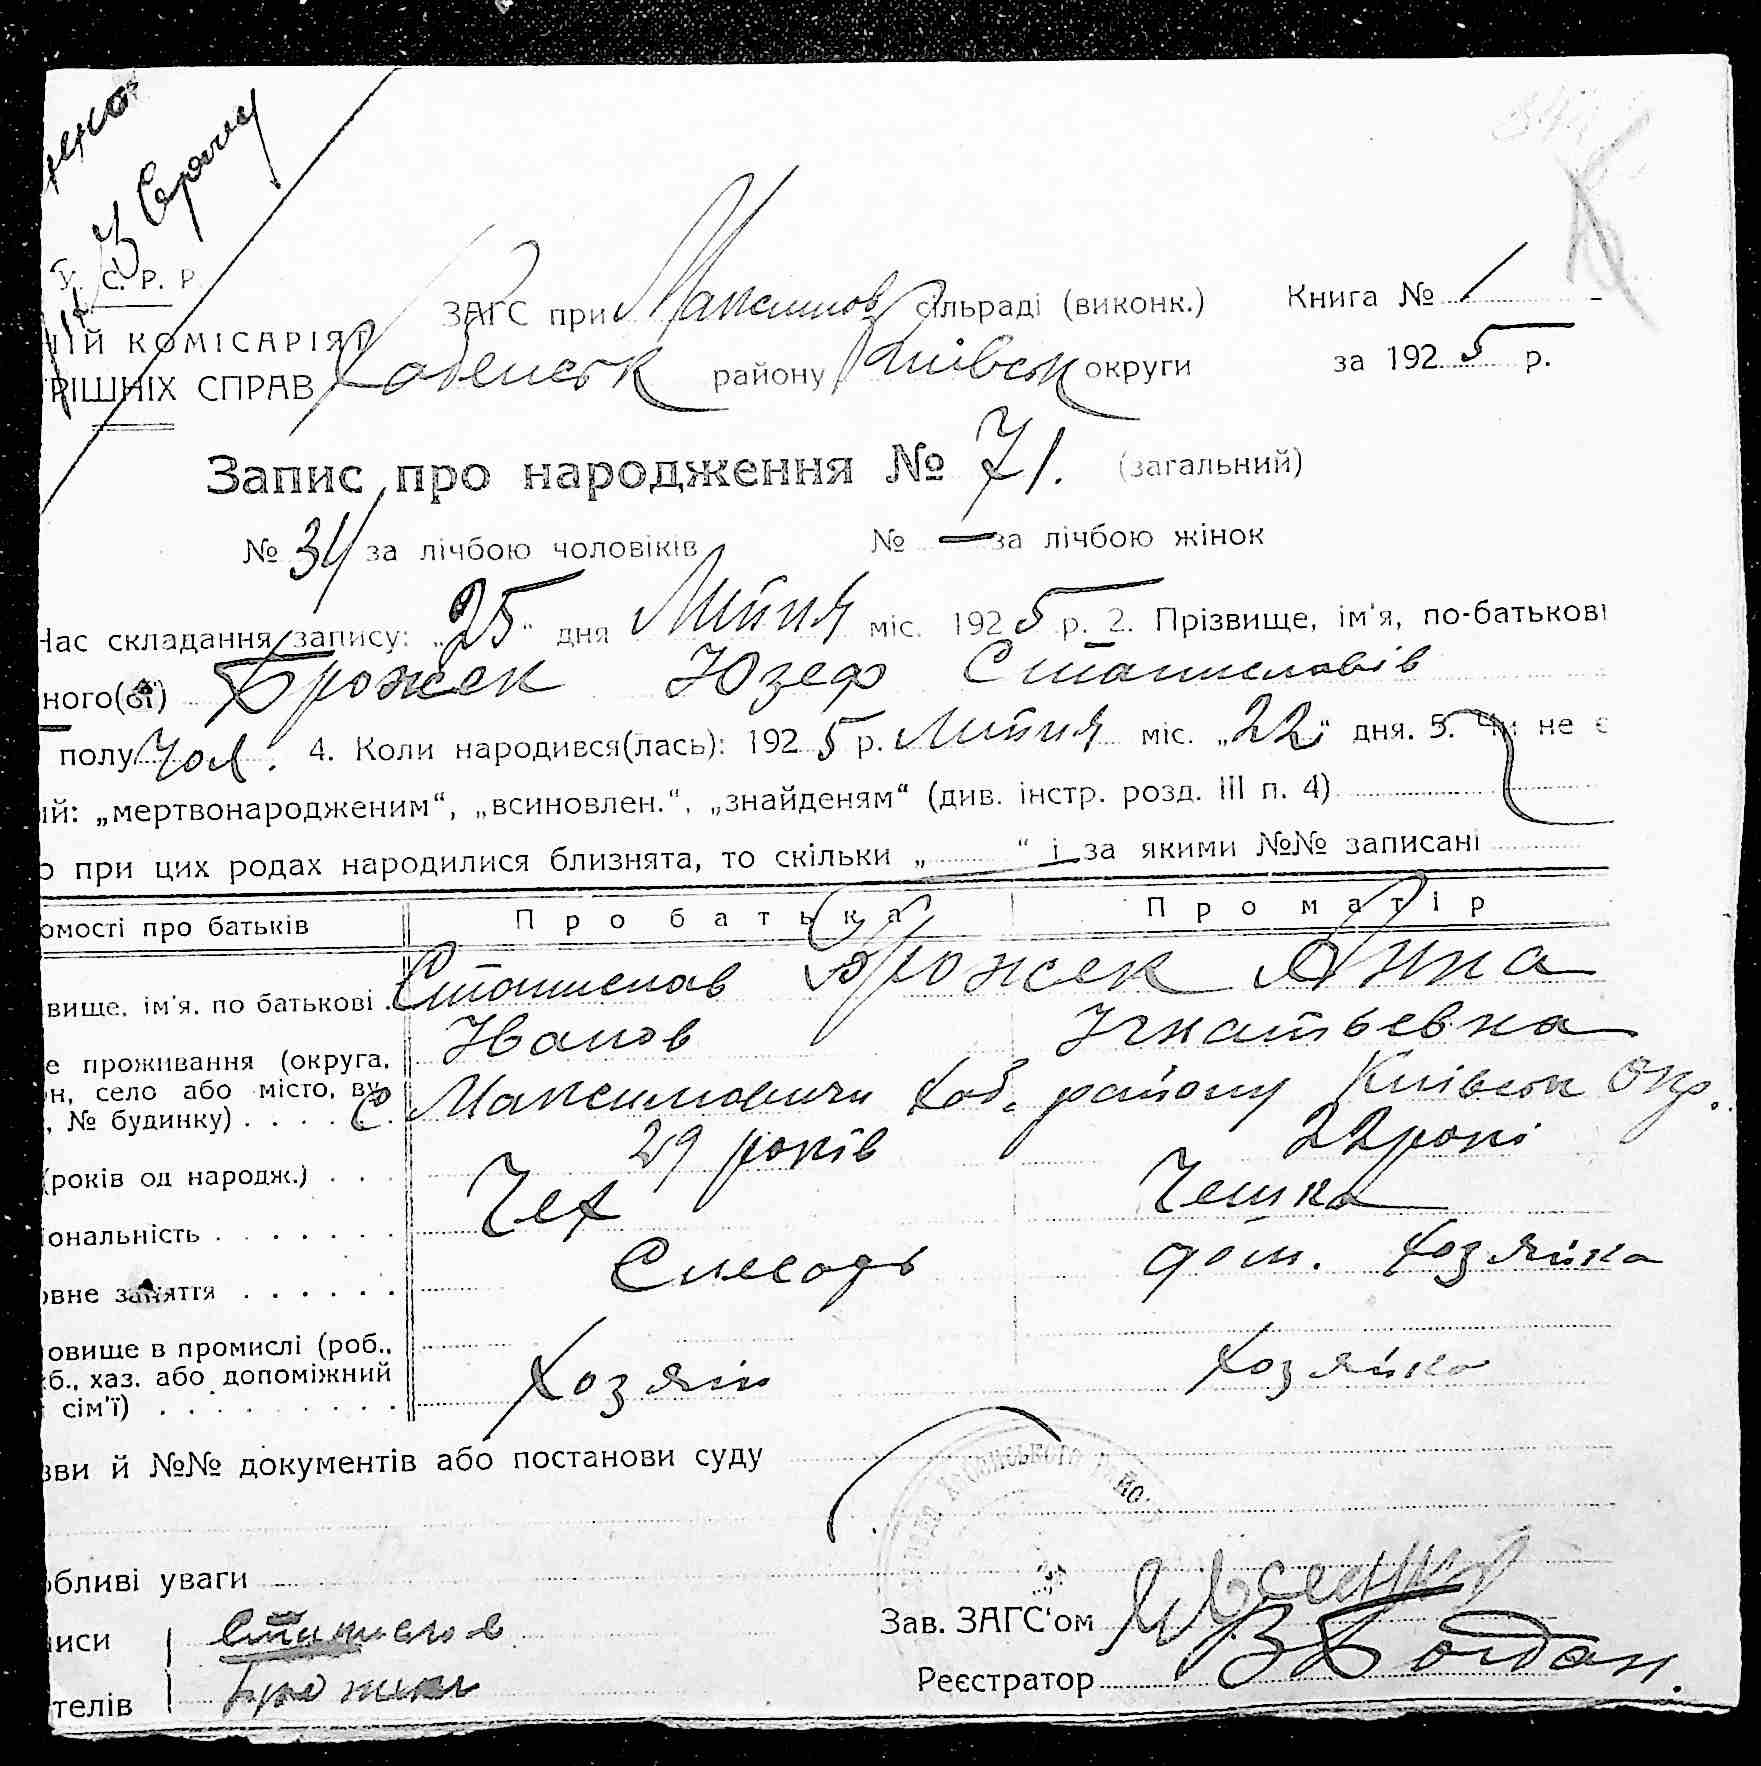 У. С. Р. Р.
ЗАГС при Максимов сільраді (виконк.) Книга № 1
ІЙ КОМІСАРІЯТ
Хабенськ району Київськ округи за 1925 р.
РІШНІХ СПРАВ
Запис про народження № 71. (загальний)
№ 34 за лічбою чоловіків № — за лічбою жінок
Час складання запису: „25“ дня Липня міс. 1925 р. 2. Прізвище, ім'я, по-батькові
ного(ої) Брожек Юзеф Станиславів
полу Чол. 4. Коли народився(лась): 1925 р. Липня міс. „22“ дня. 5. Чи не є
ий: „мертвонародженим“, „всиновлен.“, „знайденям“ (див. інстр. розд. III п. 4)
о при цих родах народилися близнята, то скільки „ “ і за якими №№ записані
омості про батьків Про батька Про матір
вище, ім'я, по батькові Станислав Брожек Анна
Иванов Игнатьевна
е проживання (округа,
он, село або місто, ву
, № будинку) С. Максимовичи Хаб. району Київськ Окр.
(років од народж.) 29 років 22 роки
іональність Чех Чешка
овне заняття Слесарь дом. хозяйка
овище в промислі (роб.,
жб., хаз. або допоміжний
сім'ї) Хозяин хозяйка
зви й №№ документів або постанови суду
обливі уваги
иси Станислов
телів
Зав. ЗАГС'ом
Реєстратор В Богдан.